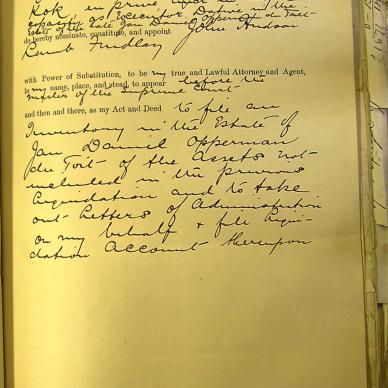 Kok in
capacity as Executor Dative in the
Estate of the late Jan Daniel Opperman du Toit
do hereby nominate, constitute, and appoint John Hudson
Lamb Findlay
with Power of Substitution, to be my true and Lawful Attorney and Agent,
in my name, place, and stead, to appear before the
Master of the Supreme Court
and then and there, as my Act and Deed to file an
Inventory in the Estate of
Jan Daniel Opperman
du Toit of the assets not
included in the previous
liquidation and to take
out Letters of Administration
on my behalf & file Liqui-
dation Account thereupon